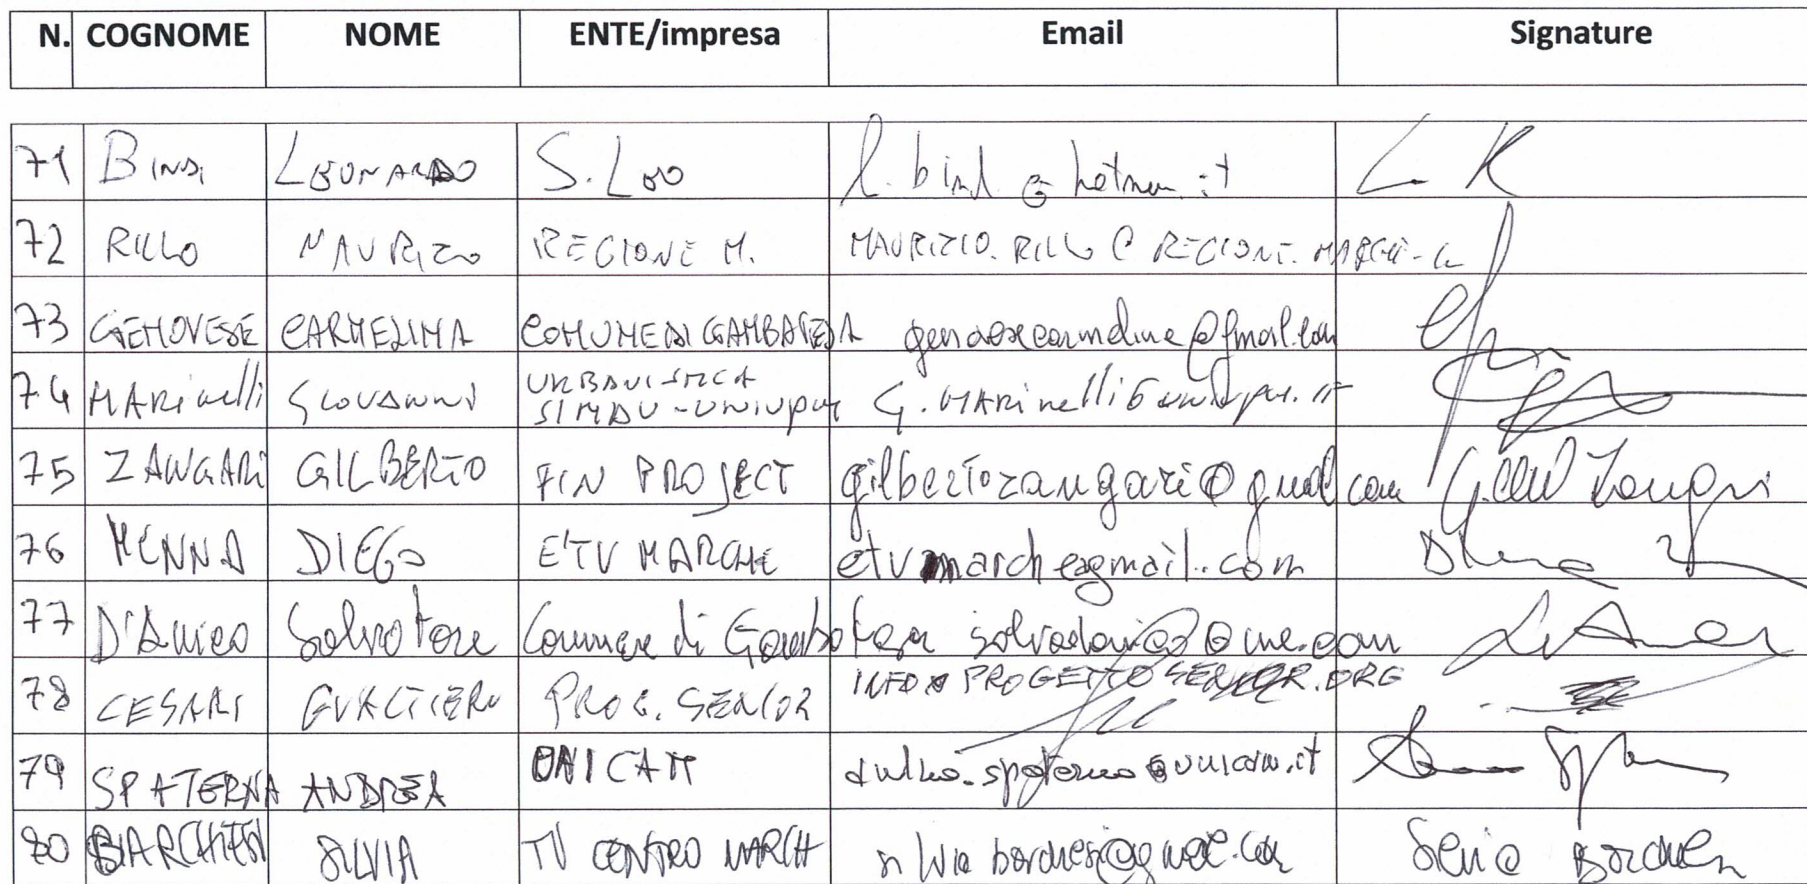 N. COGNOME NOME ENTE/impresa Email Signature
71 BINDI LEONARDO S. LEO
72 RILLO MAURIZIO REGIONE M. MAURIZIO.RILLO@REGIONE.MARCHE.
73 GENOVESE CARMELINA COMUNE DI GAMBATESA @gmail.com
74 MARinelli GIOVANNI URBANISTICA
SIMAU-UNIVPM G.MARinelli@univpm.it
75 ZANGARI GILBERTO FIN PROJECT gilbertozangari@gmail.com
76 MENNA DIEGO E'TV MARCHE etvmarche@gmail.com
77 D'Amico Salvatore Comune di Gambatesa
78 CESARI GUALTIERO PROG. SENIOR INFO@PROGETTOSENIOR.ORG
79 SPATERNA ANDREA UNICAM andrea.spaterna@unicam.it
80 SILVIA TV CENTRO MARCH Silvia